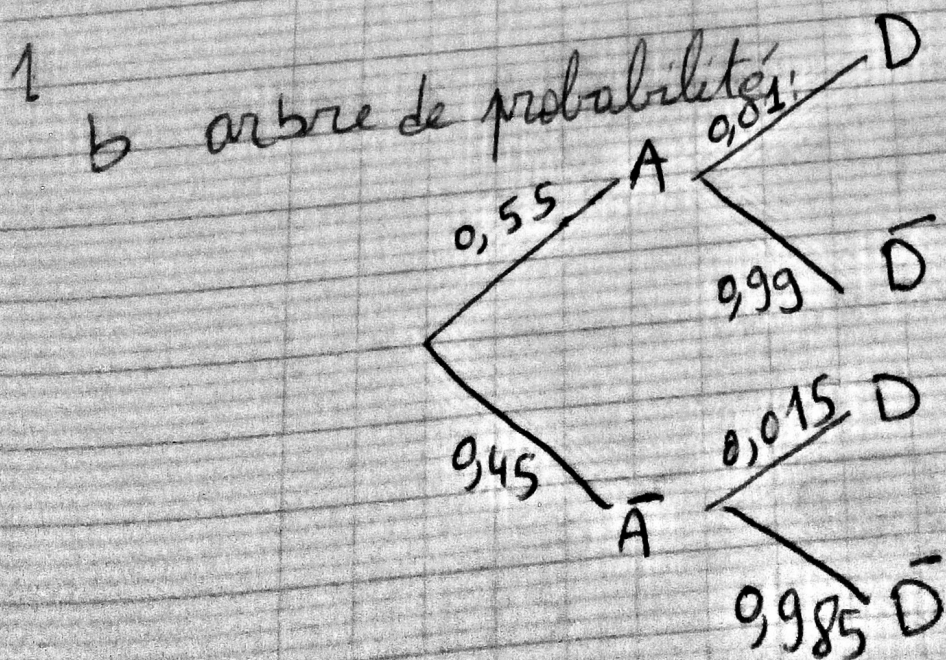 1
b arbre de probabilités:
D
0,01
A
0,55
0,99
D̄
0,45
0,015
D
Ā
0,985
D̄